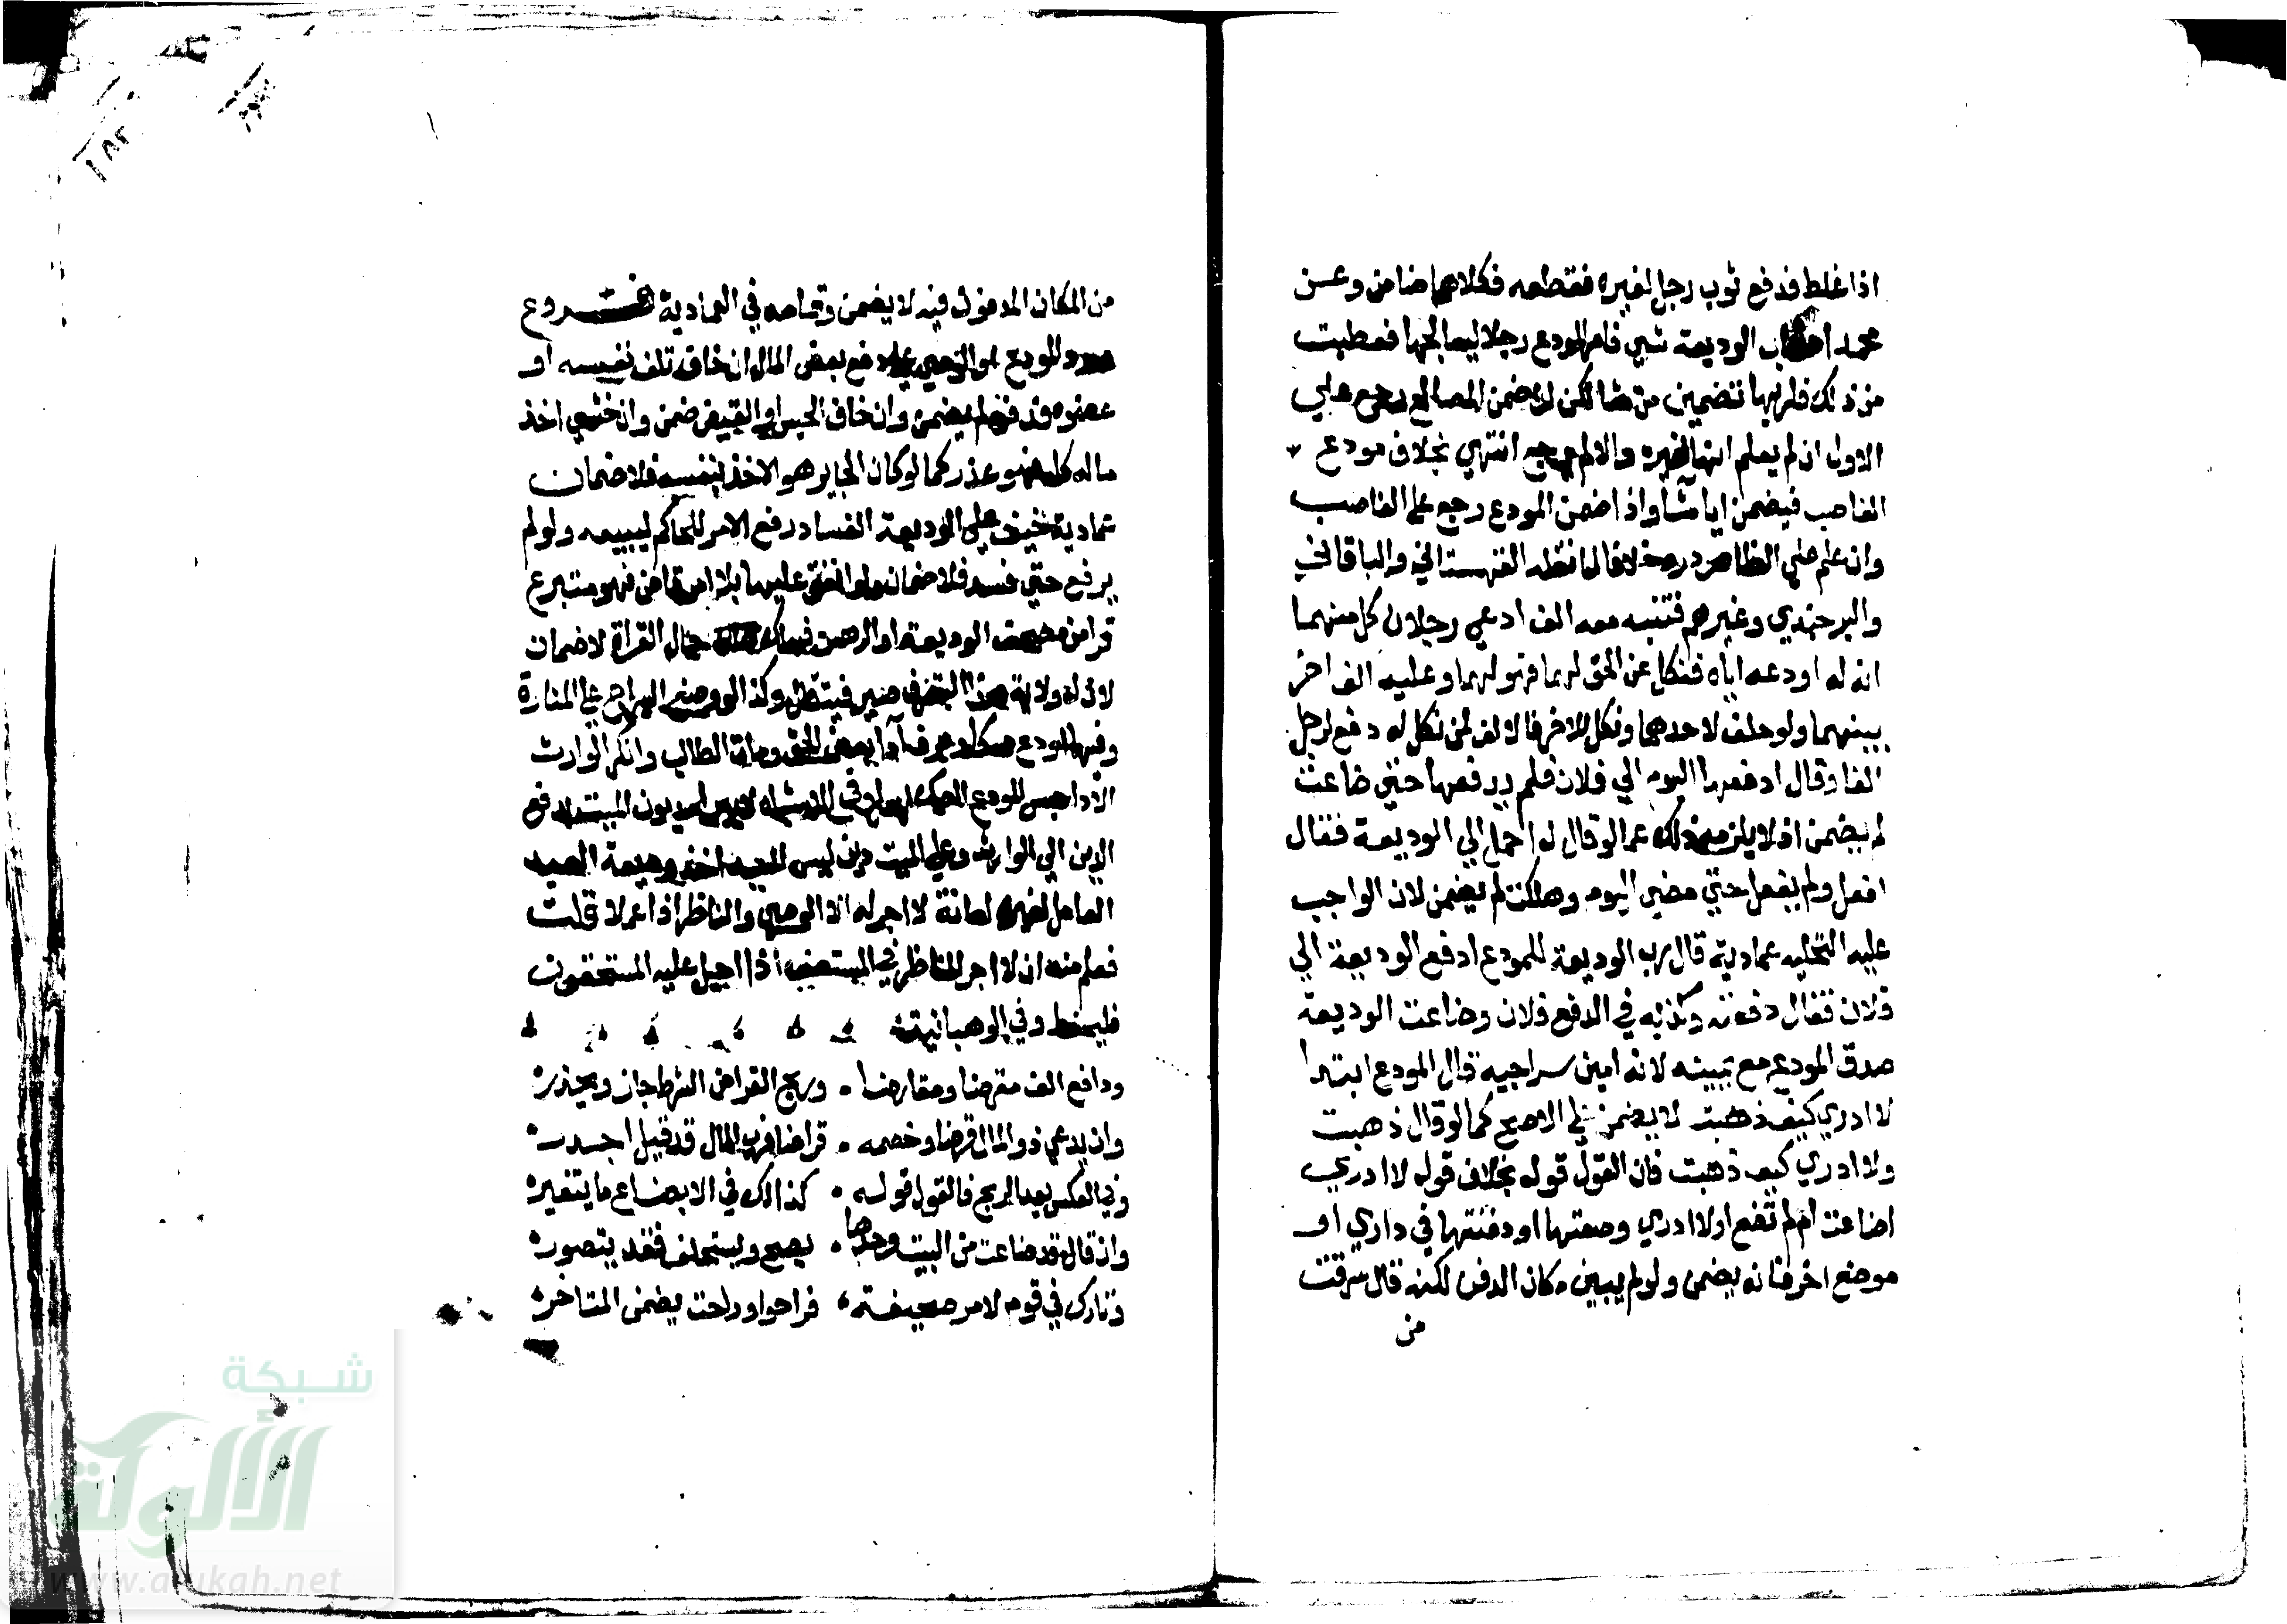 اذا غلط فدفع ثوب رجل لغيره فقطعه فكلاهما ضامن وعن
محمد اصاب الوديعة شيء فامر المودع رجلا ليعالجها فعطبت
من ذلك فلربها تضمين من شا لكن ان ضمن المعالج رجع علي
الاول ان لم يعلم انها لغيره والا لم يرجع انتهي بخلاف مودع
الغاصب فيضمن ايا شآ واذا ضمن المودع رجع علي الغاصب
وان علم علي الظاهر درر خلافا لما نقله القهستاني والباقاني
والبرجندي وغيرهم فتنبه معه الف ادعي رجلان كل منهما
انه له اودعه اياه فنكل عن الحق لهما فهو لهما وعليه الف اخر
بينهما ولو حلف لاحدهما ونكل للاخر فالالف لمن نكل له دفع لرجل
الفا وقال ادفعها اليوم الي فلان فلم يدفعها حتي ضاعت
لم يضمن اذ لا يلزمه ذلك كما لو قال له احمل الي الوديعة فقال
افعل ولم يفعل حتي مضي اليوم وهلكت لم يضمن لان الواجب
عليه التخليه عمادية قال رب الوديعة للمودع ادفع الوديعة الي
فلان فقال دفعت وكذبه في الدفع فلان وضاعت الوديعة
صدق المودع مع يمينه لانه امين سراجيه قال المودع ابتدا
لا ادري كيف ذهبت لا يضمن علي الاصح كما لو قال ذهبت
ولا ادري كيف ذهبت فان القول قوله بخلاف قوله لا ادري
اضاعت ام لم تضع او لا ادري وضعتها او دفنتها في داري او
موضع اخر فانه يضمن ولو لم يبين مكان الدفن لكنه قال سرقت
من
من المكان المدفون فيه لا يضمن وتمامه في العمادية فروع
هدد المودع او الوصي علي دفع بعض المال ان خاف تلف نفسه او
عضوه فدفع لم يضمن وان خاف الحبس او القيد ضمن وان خشي اخذ
ماله كله فهو عذر كما لو كان الجاير هو الاخذ بنفسه فلا ضمان
عمادية خيف علي الوديعة الفساد رفع الامر للحاكم ليبيعه ولو لم
يرفع حتي فسد فلا ضمان ولو انفق عليها بلا امر قاض فهو متبرع
قرا من مصحف الوديعة او الرهن فهلك حال القرأة لا ضمان
لان له ولاية هذا التصرف صيرفية قال وكذا لو وضع السراج علي المنارة
وفيها المودع وعرف ادا بعض الحق ومات الطالب وانكر الوارث
الادا حبس المودع الصك ابدا وفي الاشباه لا يبرا مديون الميت بدفع
الدين الي الوارث وعلي الميت دين ليس للسيد اخذ وديعة العبد
العامل لغيره امانة لا اجر له الا الوصي والناظر اذا عملا قلت
فعلم منه ان لا اجر للناظر في المسقف اذا احيل عليه المستحقون
فليحفظ وفي الوهبانية
ودافع الف مقرضا ومقارضا وربح القراض الشرط جاز ويحذر
وان يدعي ذو المال قرضا وخصمه قراضا فرب المال قد قيل اجدر
وفي العكس بعد الربح فالقول قوله كذلك في الابضاع ما يتغير
وان قال قد ضاعت من البيت وحدها يصح ويستحلف فقد يتصور
وتارك في قوم لامر صحيفة فراحوا وراحت يضمن المتاخر
١٨٢
شبكة
الألوكة
www.alukah.net